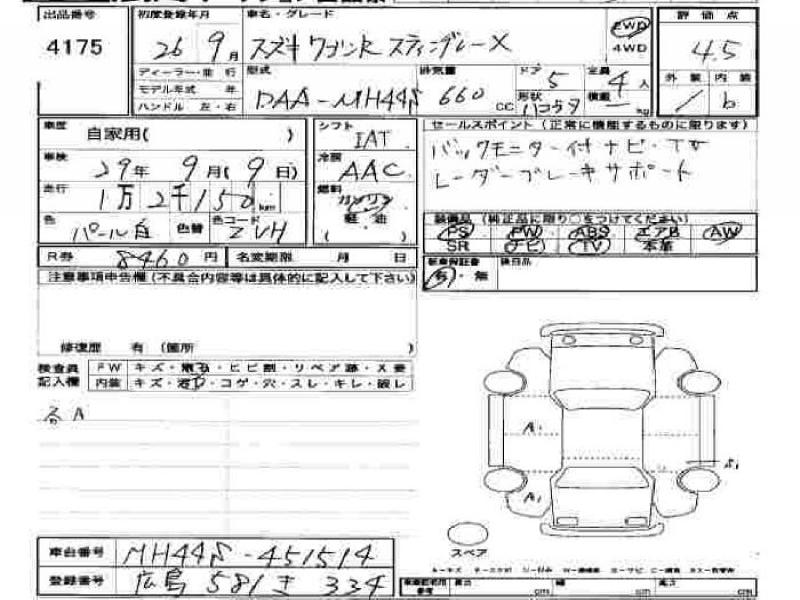 出品番号 初度登録年月 車名・グレード 評価点
4175
26年9月 スズキ ワゴンR スティングレーX 2WD 4WD 4.5
ディーラー・並行 型式 排気量 ドア 5 定員 4人 外装 内装
モデル年式 年
ハンドル 左・右 DAA-MH44S 660cc 形状 ハコ 積載 kg / b
車歴 自家用( ) シフト IAT
セールスポイント(正常に機能するものに限ります)
車検 29年 9月(9日) 冷房 AAC
バックモニター付ナビ・TV
レーダーブレーキサポート
走行 1万2千150km 燃料 ガソリン 軽油 ( )
色 パール白 色替 色コード ZVH
装備品(純正品に限り○をつけてください)
PS PW ABS エアB AW
SR ナビ TV 本革
R券 8460円 名変期限 月 日
新車保証書 有・無 後日品
注意事項申告欄(不具合内容等は具体的に記入して下さい)
修復歴 有(箇所
検査員記入欄 FW キズ・飛石・ヒビ割・リペア跡・X要
内装 キズ・汚れ・コゲ・穴・スレ・キレ・破レ
各A
A1
A1
スペア
車台番号 MH44S-451514
登録番号 広島 581 き 334
長さ cm 幅 cm 高さ cm